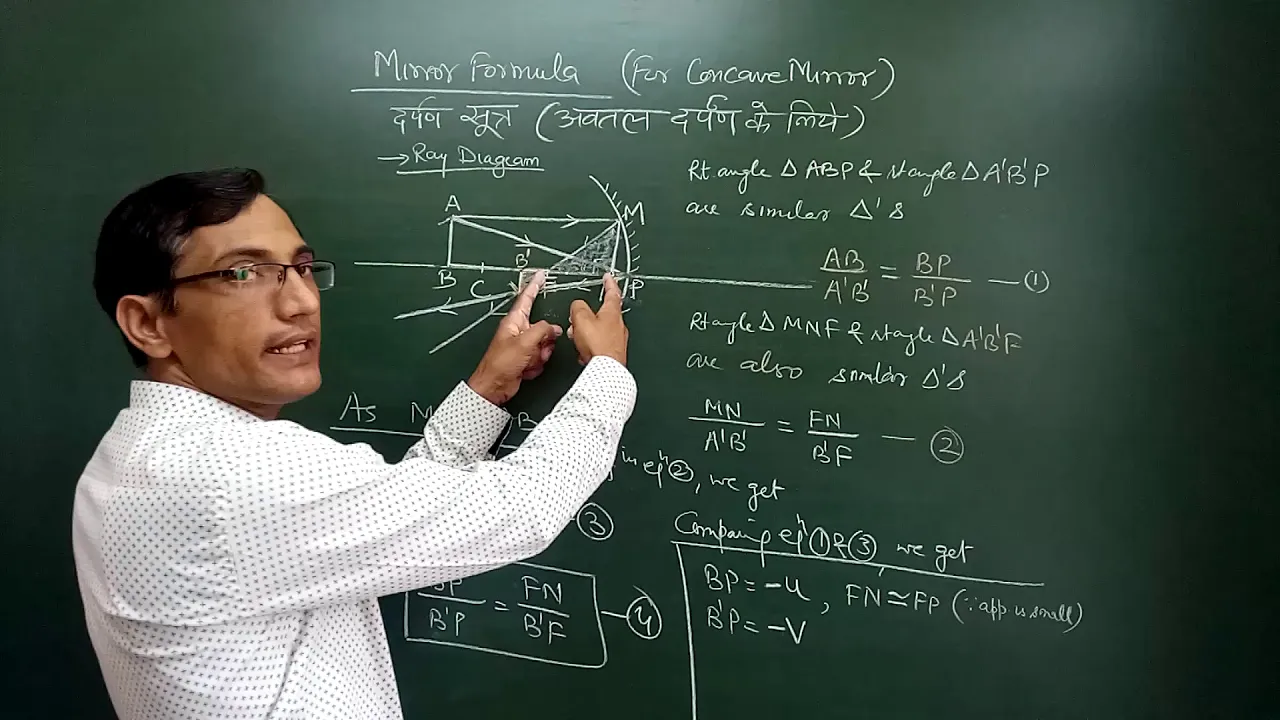 Mirror Formula (For Concave Mirror)
दर्पण सूत्र (अवतल दर्पण के लिये)
→ Ray Diagram
A
M
B'
B
C
F
P
As M
B
in eqⁿ②, we get
③
BP/B'P = FN/B'F — ④
Rt. angle Δ ABP & rt angle Δ A'B'P
are similar Δ'S
AB/A'B' = BP/B'P — ①
Rt angle Δ MNF & rt angle Δ A'B'F
are also similar Δ'S
MN/A'B' = FN/B'F — ②
Comparing eqⁿ ① & ③, we get
BP = -u, FN ≃ FP (∵ app is small)
B'P = -V